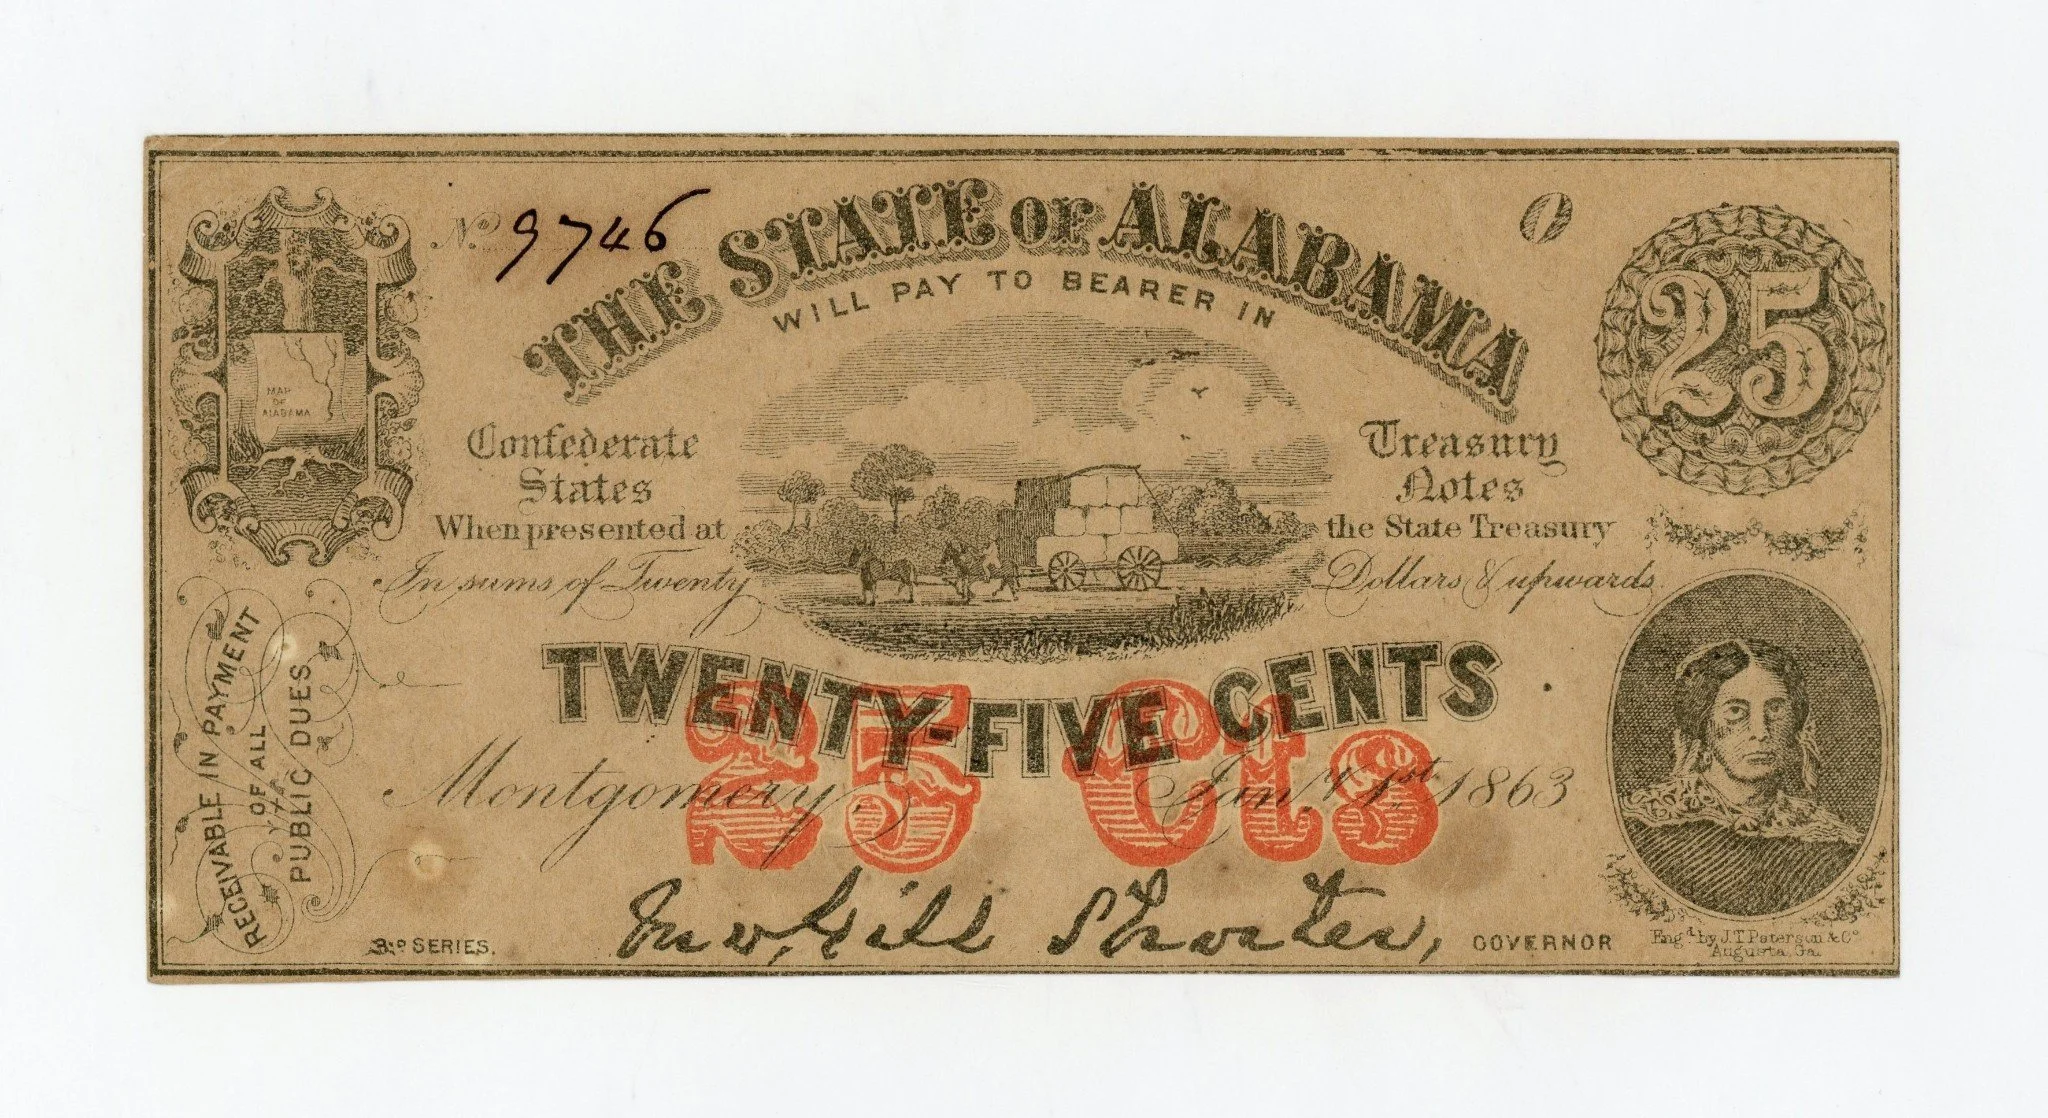 No 9746
O
THE STATE OF ALABAMA
WILL PAY TO BEARER IN
25
MAP
OF
ALABAMA
Confederate Treasury
States Notes
When presented at the State Treasury
In sums of Twenty Dollars & upwards
TWENTY-FIVE CENTS
25 Cts
Montgomery, Jany. 1st. 1863
RECEIVABLE IN PAYMENT
OF ALL
PUBLIC DUES
Jno, Gill Shorter, GOVERNOR
3RD SERIES.
Engd. by J.T. Paterson & Co
Augusta, Ga.